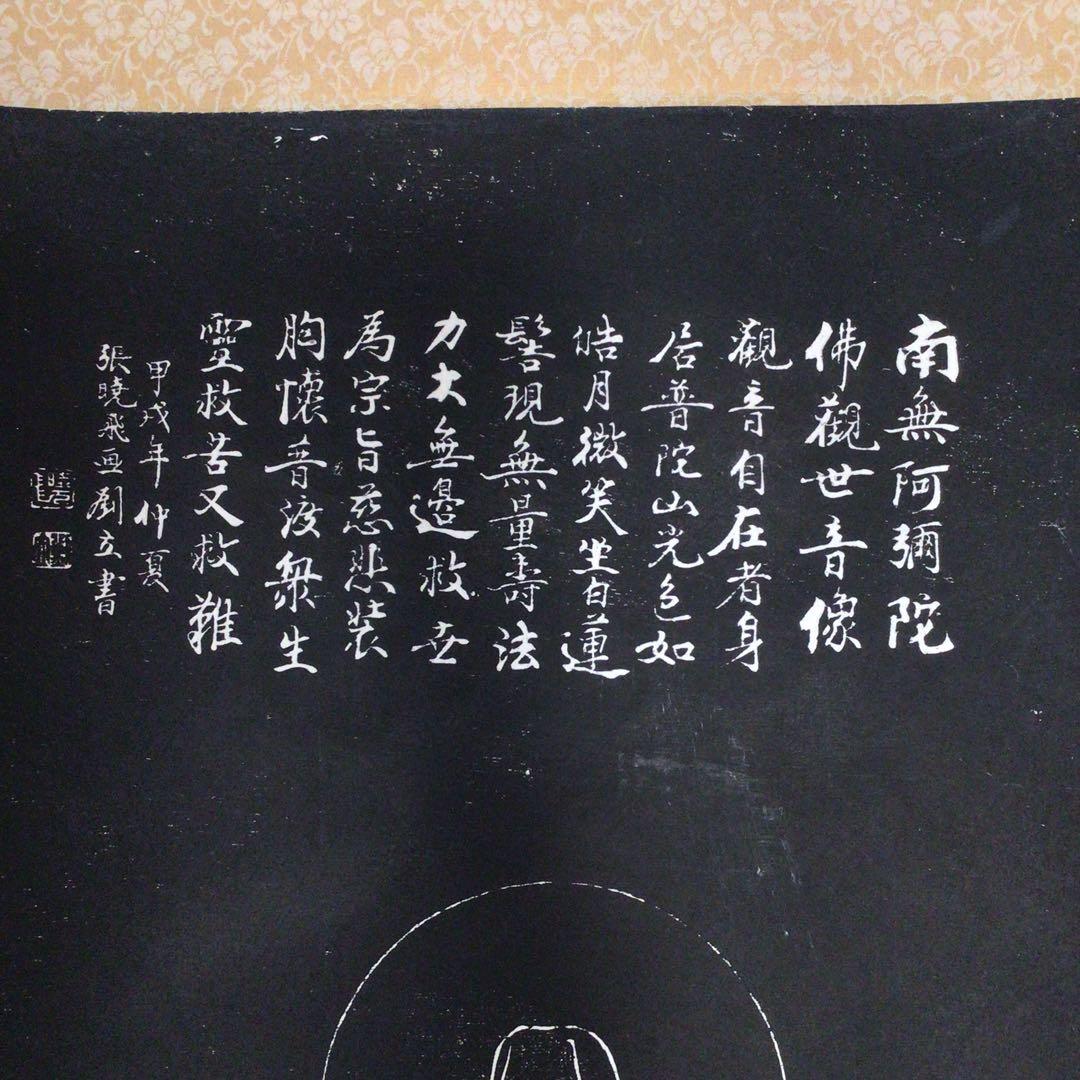 南無阿彌陀
佛觀世音像
觀音自在者身
居普陀山光色如
皓月微笑坐白蓮
髻現無量壽法
力大無邊救世
為宗旨慈悲裝
胸懷普渡衆生
靈救苦又救難
甲戌年仲夏
張曉飛画劉立書